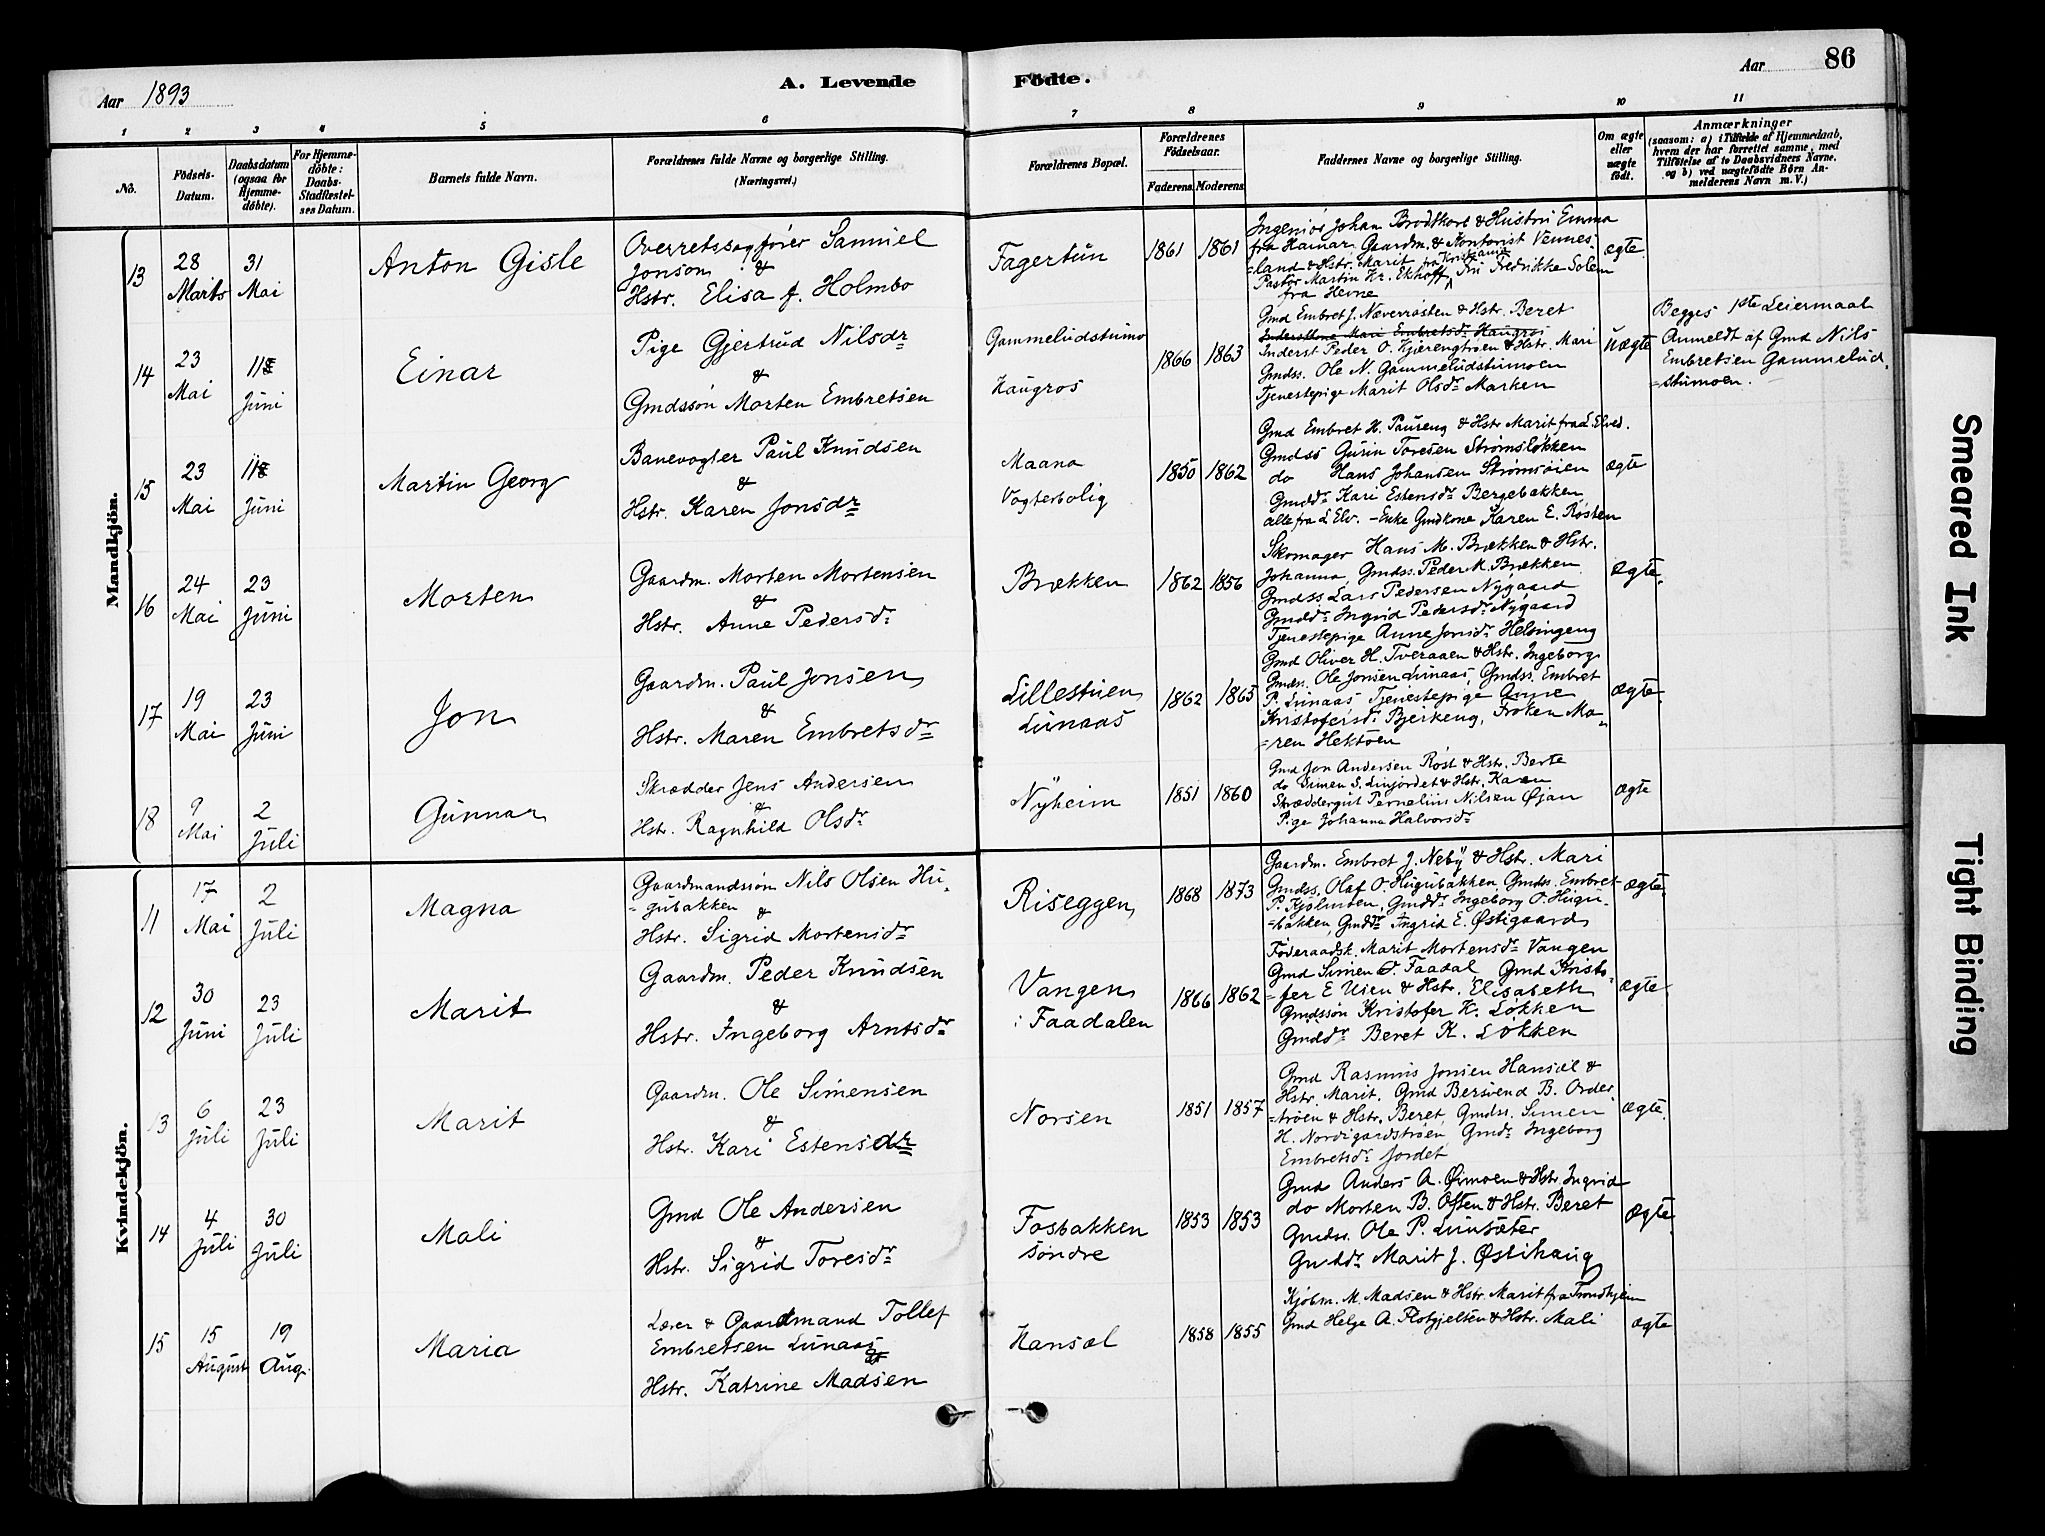 Aar 1893
A. Levende Födte.
Aar 86
1 2 3 4 5 6 7 8 9 10 11
No.
Födsels-Datum.
Daabsdatum (ogsaa for Hjemme-döbte).
For Hjemme-döbte: Daabs-Stadfæstel-ses Datum.
Barnets fulde Navn.
Forældrenes fulde Navne og borgerlige Stilling. (Næringsvei.)
Forældrenes Bopæl.
Forældrenes Födselsaar.
Faderens. Moderens.
Faddernes Navne og borgerlige Stilling.
Om ægte eller uægte födt.
Anmærkninger
(saasom: a) i Tilfælde af Hjemmedaab, hvem der har forrettet samme, med Tilföielse af to Daabsvidners Navne, og b) ved uægtefödte Börn Anmelderens Navn m. V.)
Mandkjön.
13
28 Marts
31 Mai
Anton Gisle
Overretssagfører Samuel
Jonson &
Hstr. Elisa J. Holmbo
Fagertun
1861 1861
Ingeniør Johan Brodtkorb & Hustru Emma
fra Hamar, Gaardm. & Kontorist Vennes-
=land & Hstr. Marit fra Kristiania
Pastor Martin Kr. Ekhoff, Frü Fredrikke Solem
fra Hevne
ægte
14
23 Mai
11 Juni
Einar
Pige Gjertrud Nilsdr
&
Gmdssøn Morten Embretsen
Gammeludstumo
Haugros
1866 1863
Gmd Embret J. Næverrosten & Hstr. Beret
Inderstkone Mari Embretsdr Haugros
Inderst Peder O. Kjærengtrøen & Hstr. Mari
Gmdss. Ole N. Gammeludstumoen
Tjenestepige Marit Olsdr Marken
uægte
Begges 1ste Leiermaal
Anmeldt af Gmd Nils
Embretsen Gammelud
=stumoen.
15
23 Mai
11 Juni
Martin Georg
Banevogter Paul Knudsen
&
Hstr. Karen Jonsdr
Maana
Vogterbolig
1850 1862
Gmd Embret H. Paureng & Hstr Marit fra L. Elved.
Gmdss Gurin Toresen Strømsløkken
do Hans Johansen Strømsøien
Gmddr Kari Estensdr Bergebakken
alle fra L Elv. – Enke Gmdkone Karen E. Rosten
ægte
16
24 Mai
23 Juni
Morten
Gaardm. Morten Mortensen
&
Hstr. Anne Pedersdr
Brækken
1862 1856
Skomager Hans M. Brækken & Hstr.
Johanna, Gmdss. Peder M. Brækken
Gmdss Lars Pedersen Nygaard
Gmddr Ingrid Pedersdr Nygaard
Tjenestepige Anne Jonsdr Helsingeng
ægte.
17
19 Mai
23 Juni
Jon
Gaardm. Paul Jonsen
&
Hstr. Maren Embretsdr
Lillestuen
Lunaas
1862 1865
Gmd Oliver H. Tveraaen & Hstr. Ingeborg
Gmdss. Ole Jonsen Lunaas, Gmdss. Embret
P. Lunaas Tjenestepige Anne
Kristofersdr Bjerkeng, Frøken Ma-
=ren Hektoen
ægte.
18
9 Mai
2 Juli
Gunnar
Skrædder Jens Andersen
&
Hstr. Ragnhild Olsdr
Nyheim
1851 1860
Gmd Jon Andersen Røst & Hstr. Berte
do Simen S. Linjordet & Hstr. Karen
Skræddergut Pernelius Nilsen Øian
Pige Johanna Halvorsdr
ægte
Kvindekjön.
11
17 Mai
2 Juli
Magna
Gaardmandssøn Nils Olsen Hu-
=gubakken
&
Hstr. Sigrid Mortensdr
Riseggen
1868 1873
Gaardm. Embret J. Neby & Hstr. Mari
Gmdss. Olaf O. Hugubakken Gmdss. Embret
P. Kjølmoen, Gmddr Ingeborg O. Hugu-
=bakken, Gmddr Ingrid E. Østigaard
ægte.
12
30 Juni
23 Juli
Marit
Gaardm. Peder Knudsen
&
Hstr. Ingeborg Arntsdr
Vangen
i Faadalen
1866 1862
Føderaadsk. Marit Mortensdr Vangen
Gmd Simen J. Faadal Gmd Kristo-
=fer E Uien & Hstr. Elisabeth
Gmdssøn Kristofer K. Løkken
Gmddr Beret K. Løkken
ægte.
13
6 Juli
23 Juli
Marit
Gaardm. Ole Simensen
&
Hstr. Kari Estensdr
Norsen
1851 1857
Gmd Rasmus Jonsen Hansæl &
Hstr. Marit. Gmd Bersvend B. Order
=trøen & Hstr. Beret, Gmdss. Simen
H. Nordigardstrøen, Gmdr Ingeborg
Embretsdr Jordet
ægte.
14
4 Juli
30 Juli
Mali
Gmd Ole Andersen
&
Hstr. Sigrid Toresdr
Fosbakken
søndre
1853 1853
Gmd Anders A. Ørmoen & Hstr. Ingrid
do Morten B. Often & Hstr. Beret
Gmdss. Ole P. Lunsæter
Gmddr Marit J. Østihaug
ægte.
15
15 August
19 Aug.
Maria
Lærer & Gaardmand Tollef
Embretsen Lunaas &
Hstr. Katrine Madsen
Hansæl
1858 1855
Kjøbm. M. Madsen & Hstr. Marit fra Trondhjem
Gmd Helge A. Plotgjelten & Hstr. Mali
ægte
Smeared Ink
Tight Binding